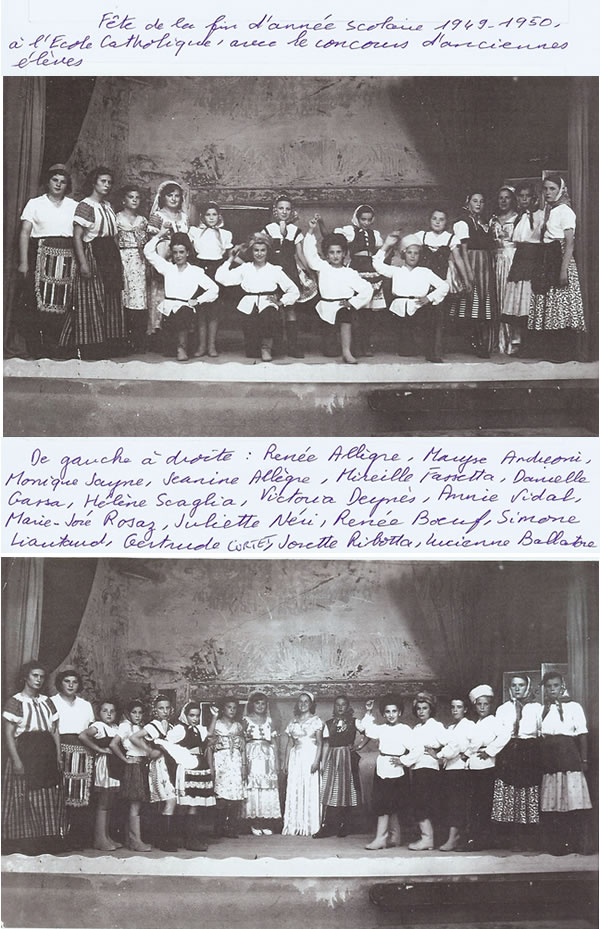 Fête de la fin d'année scolaire 1949-1950,
à l'Ecole Catholique, avec le concours d'anciennes
élèves
De gauche à droite : Renée Allègre, Maryse Andreoni,
Monique Jayne, Jeanine Allègre, Mireille Fassetta, Danielle
Garsa, Hélène Scaglia, Victoria Deynès, Annie Vidal,
Marie-José Rosaz, Juliette Néri, Renée Boeuf, Simone
Liautaud, Gertrude CORTES, Josette Ribotta, Lucienne Ballatore